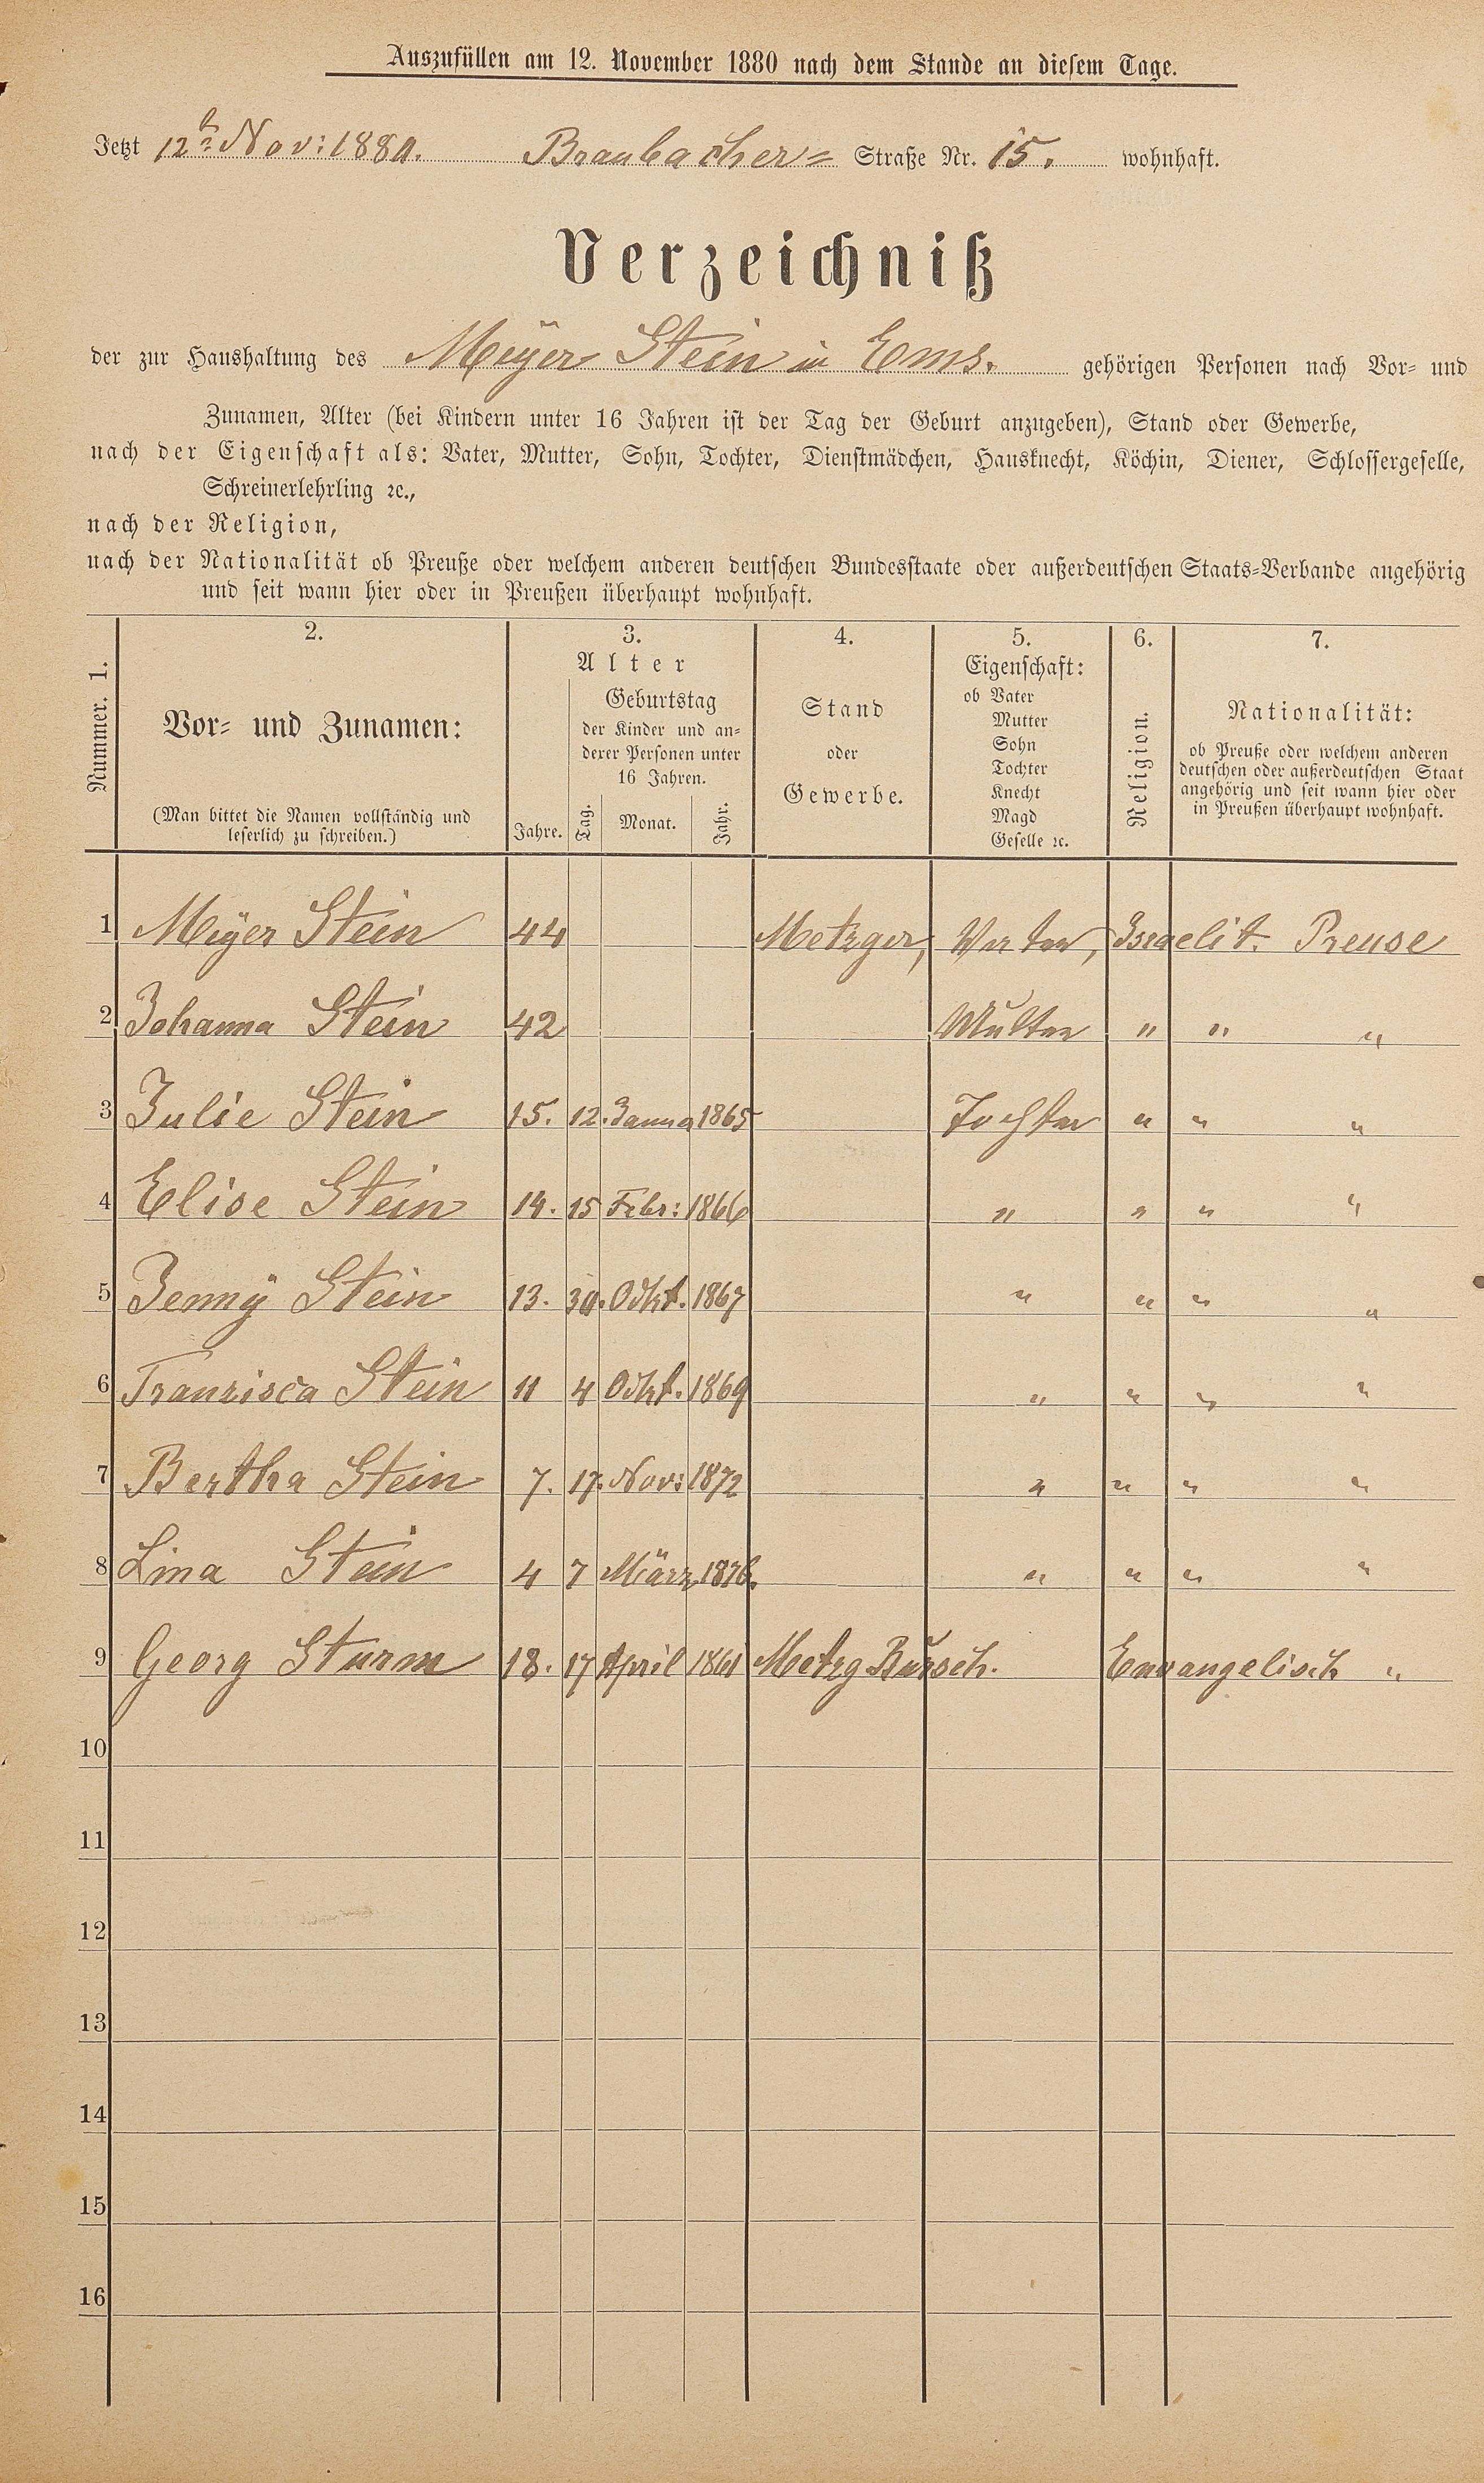 Auszufüllen am 12. November 1880 nach dem Stande an diesem Tage.
Jetzt 12t Nov: 1880. Braubacher= Straße Nr. 15. wohnhaft.
Verzeichniß
der zur Haushaltung des Meÿer Stein in Ems. gehörigen Personen nach Vor= und
Zunamen, Alter (bei Kindern unter 16 Jahren ist der Tag der Geburt anzugeben), Stand oder Gewerbe,
nach der Eigenschaft als: Vater, Mutter, Sohn, Tochter, Dienstmädchen, Hausknecht, Köchin, Diener, Schlossergeselle,
Schreinerlehrling ꝛc.,
nach der Religion,
nach der Nationalität ob Preuße oder welchem anderen deutschen Bundesstaate oder außerdeutschen Staats=Verbande angehörig
und seit wann hier oder in Preußen überhaupt wohnhaft.
Nummer. 1.
2.
Vor= und Zunamen:
(Man bittet die Namen vollständig und
leserlich zu schreiben.)
3.
Alter
Jahre.
Geburtstag
der Kinder und an=
derer Personen unter
16 Jahren.
Tag. Monat. Jahr.
4.
Stand
oder
Gewerbe.
5.
Eigenschaft:
ob Vater
Mutter
Sohn
Tochter
Knecht
Magd
Geselle ꝛc.
6.
Religion.
7.
Nationalität:
ob Preuße oder welchem anderen
deutschen oder außerdeutschen Staat
angehörig und seit wann hier oder
in Preußen überhaupt wohnhaft.
1 Meÿer Stein 44 Metzger, Vater, Israelit. Preuse
2 Johanna Stein 42 Mutter " " "
3 Julie Stein 15. 12. Janua 1865 Tochter " " "
4 Elise Stein 14. 15 Febr: 1866 " " " "
5 Jennÿ Stein 13. 30. Ockt. 1867 " " " "
6 Franzisca Stein 11 4 Ockt. 1869 " " " "
7 Bertha Stein 7. 17. Nov: 1872 " " " "
8 Lina Stein 4 7 März 1876. " " " "
9 Georg Sturm 18. 17 April 1861 Metzg Bursch. Envangelisch "
10
11
12
13
14
15
16